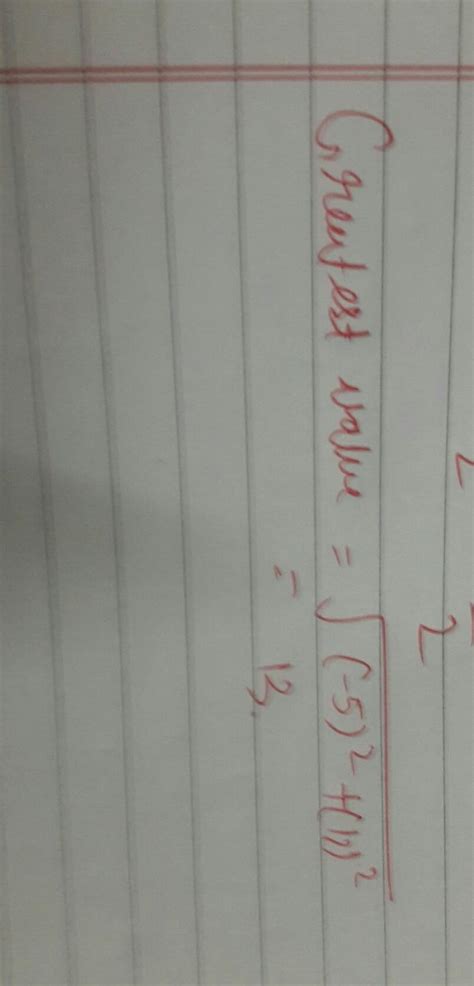 2
Greatest value = √(-5)² + (12)²
= 13.